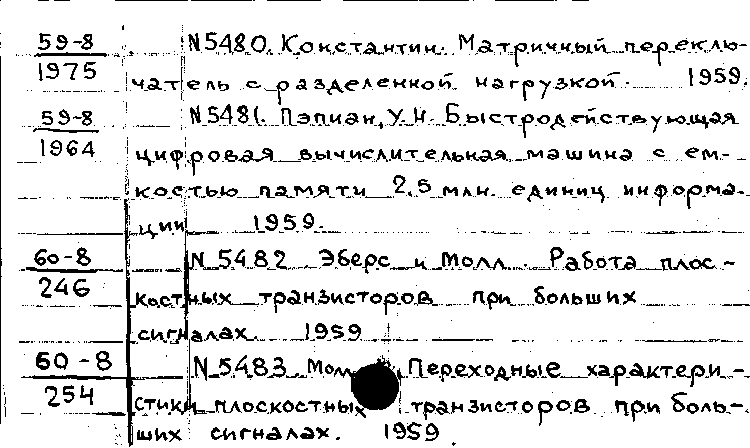 59-8 N5480. Константин. Матричный переклю-
1975 чатель с разделенной нагрузкой. 1959.
59-8 N5481. Пэпиан, У.Н. Быстродействующая
1964 цифровая вычислительная машина с ем-
костью памяти 2.5 млн. единиц информа-
ции 1959.
60-8 N 5482 Эберс и Молл. Работа плос-
246 костных транзисторов при больших
сигналах. 1959
60-8 N 5483 Переходные характери-
254 стики плоскостных транзисторов при боль-
ших сигналах. 1959.